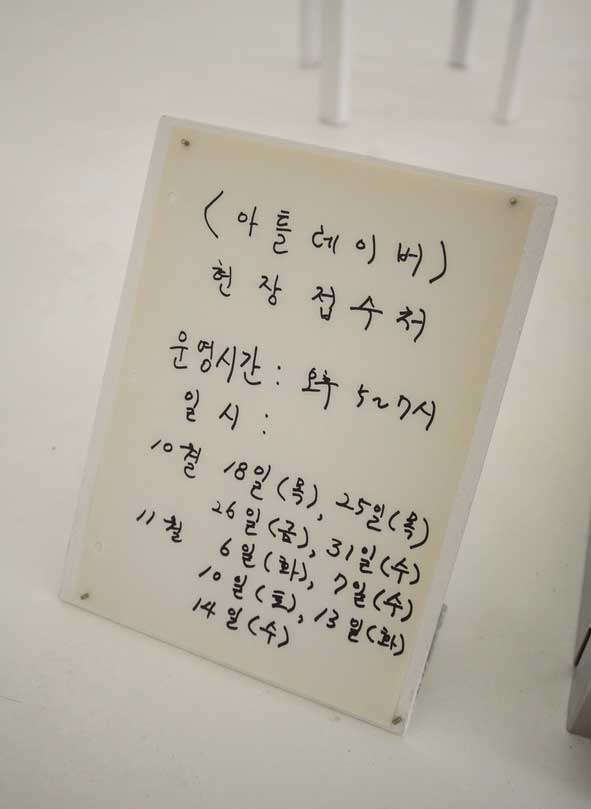 (아틀레이버)
현장접수처
운영시간: 오후 5~7시
일시:
10월 18일(목), 25일(목)
26일(금), 31일(수)
11월 6일(화), 7일(수)
10일(토), 13일(화)
14일(수)